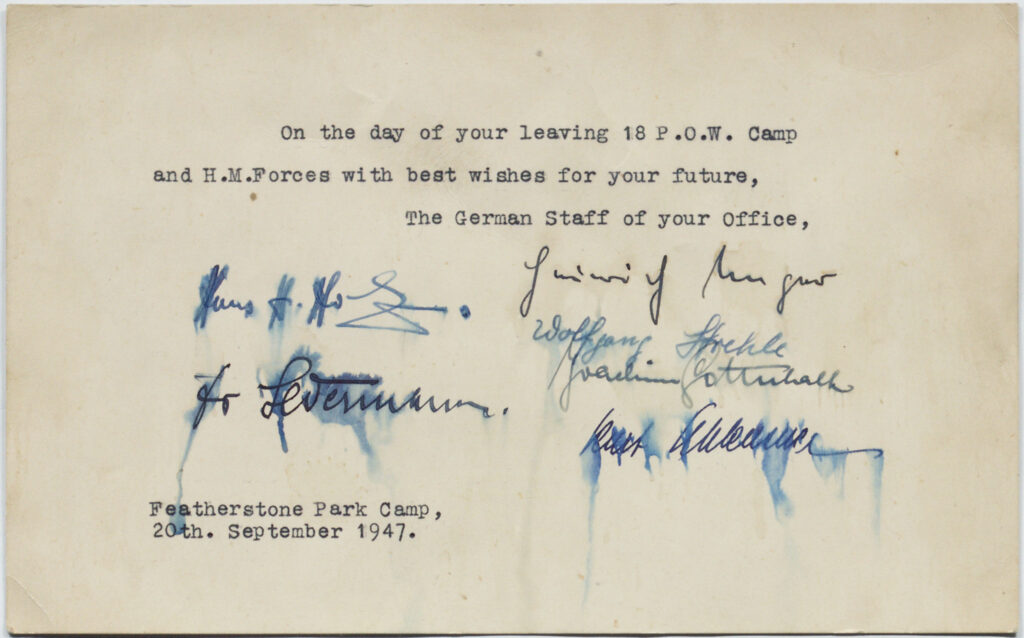 On the day of your leaving 18 P.O.W. Camp
and H.M.Forces with best wishes for your future,
The German Staff of your Office,
Hans H.
Heinrich Unger
Wolfgang Strehle
Joachim Gottschalk
Dr Ledermann.
Kurt
Featherstone Park Camp,
20th. September 1947.